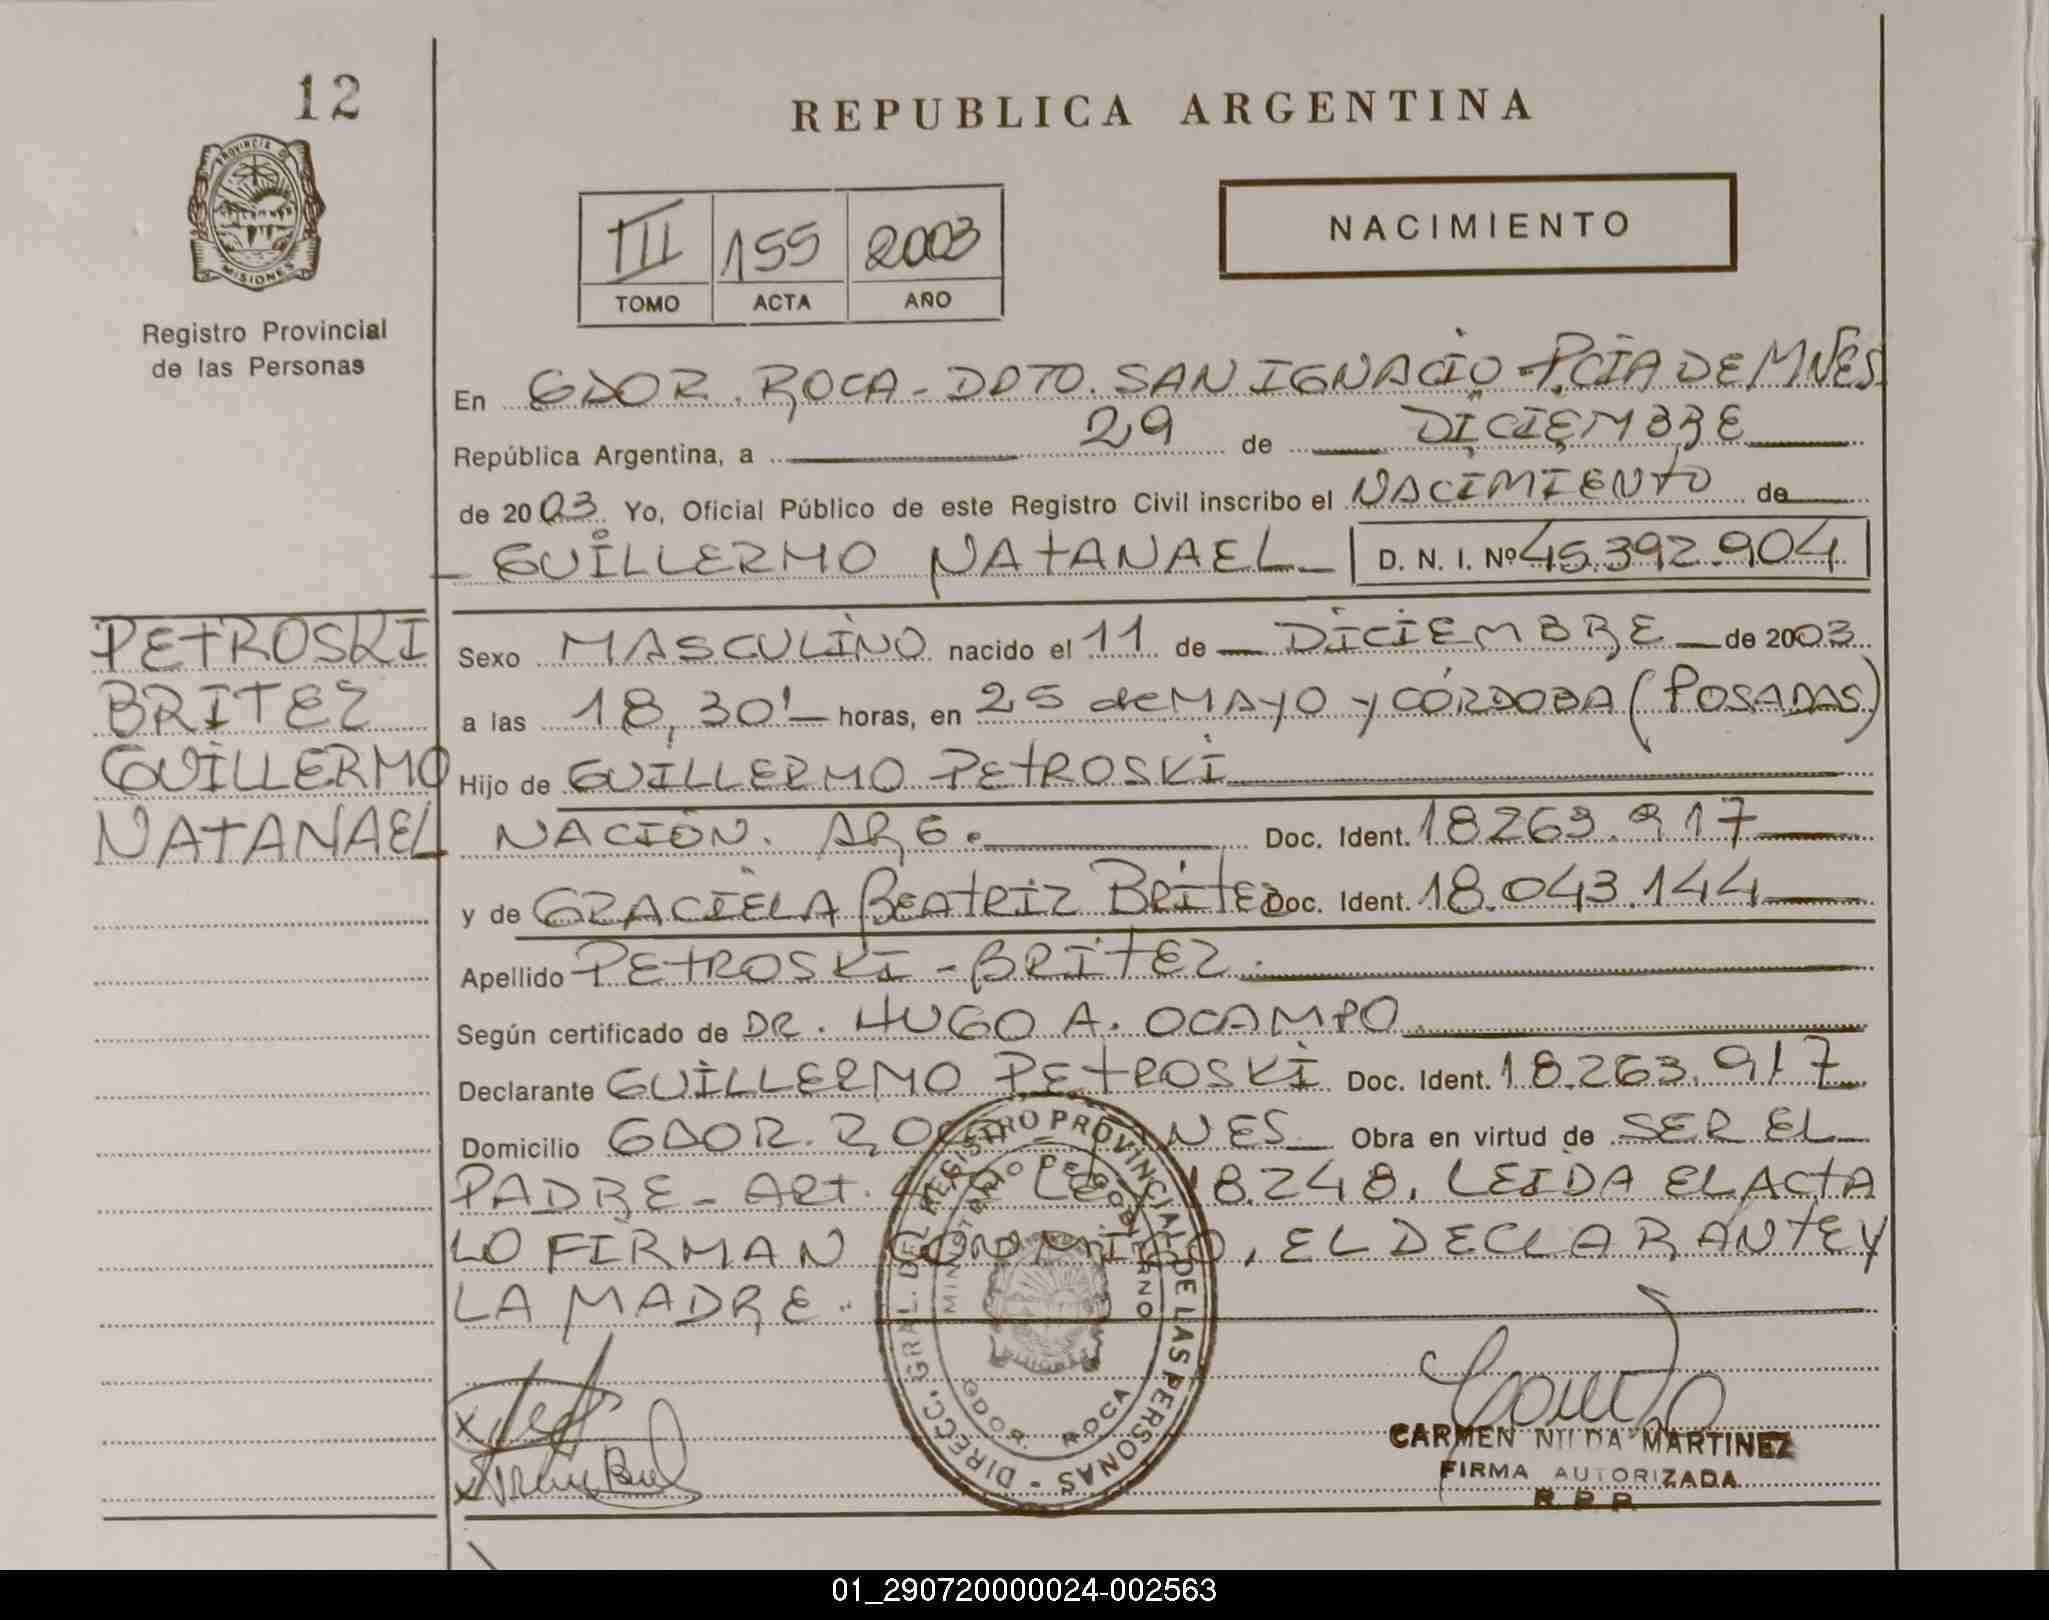 12
REPUBLICA ARGENTINA
PROVINCIA DE
MISIONES
Registro Provincial
de las Personas
III 155 2003
TOMO ACTA AÑO
NACIMIENTO
En GDOR. ROCA - DPTO. SAN IGNACIO - PCIA DE MNES
República Argentina, a 29 de DICIEMBRE
de 2003 Yo, Oficial Público de este Registro Civil inscribo el NACIMIENTO de
GUILLERMO NATANAEL D. N. I. Nº 45.392.904
PETROSKI
BRITEZ
GUILLERMO
NATANAEL
Sexo MASCULINO nacido el 11 de DICIEMBRE de 2003
a las 18,30' horas, en 25 de MAYO y CÓRDOBA (POSADAS)
Hijo de GUILLERMO PETROSKI
NACIÓN. ARG. Doc. Ident. 18263.917
y de GRACIELA BEATRIZ BRITEZ Doc. Ident. 18.043.144
Apellido PETROSKI - BRITEZ.
Según certificado de DR. HUGO A. OCAMPO
Declarante GUILLERMO PETROSKI Doc. Ident. 18.263.917
Domicilio GDOR. ROCA NES Obra en virtud de SER EL
PADRE - ART. LEY 18.248. LEIDA EL ACTA
LO FIRMAN CONMIGO, EL DECLARANTE Y
LA MADRE.
DIRECC. GRAL. DEL REGISTRO PROVINCIAL DE LAS PERSONAS -
MINISTERIO DE GOBIERNO
GDOR. ROCA
CARMEN NILDA MARTINEZ
FIRMA AUTORIZADA
R. P. P.
01_290720000024-002563